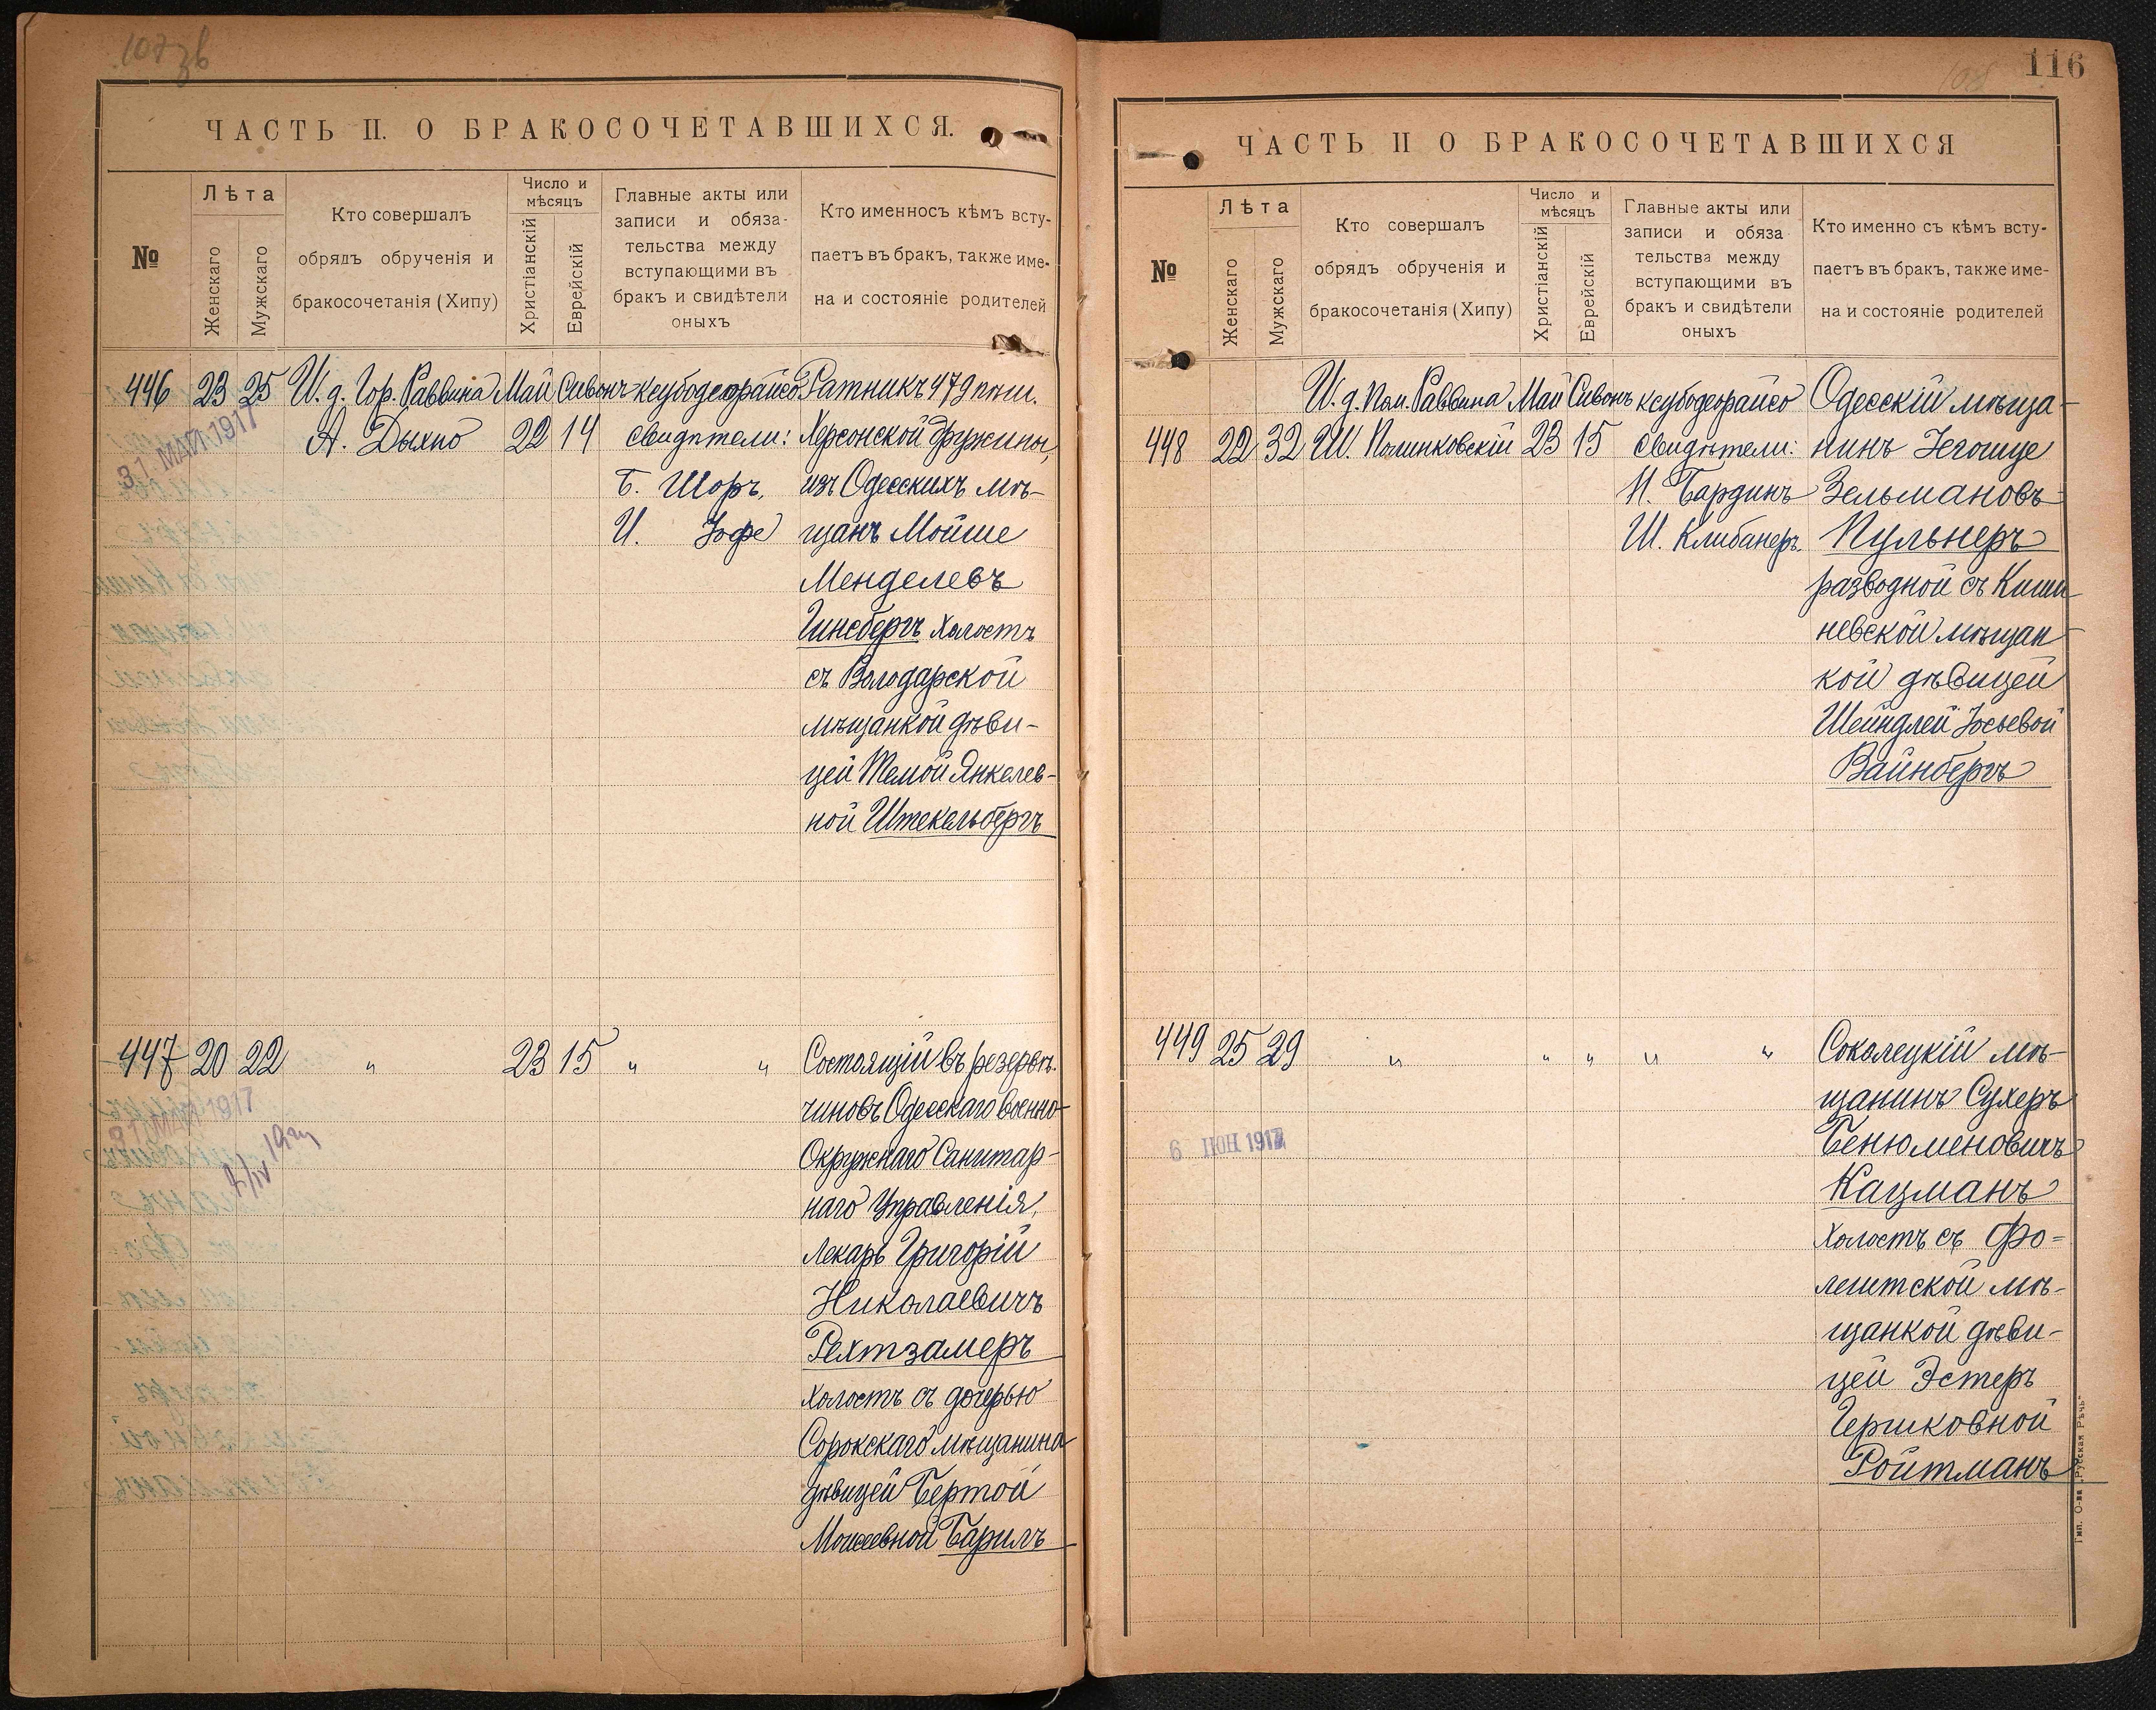 107 зв
ЧАСТЬ II. О БРАКОСОЧЕТАВШИХСЯ.
№
Лѣта
Женскаго
Мужскаго
Кто совершалъ
обрядъ обрученія и
бракосочетанія (Хипу)
Число и
мѣсяцъ
Христіанскій
Еврейскій
Главные акты или
записи и обяза-
тельства между
вступающими въ
бракъ и свидѣтели
оныхъ
Кто именносъ кѣмъ всту-
паетъ въ бракъ, также име-
на и состояніе родителей
446 23 25 И. д. Гор. Раввина Май Сивонъ ксубодеорайсо Ратникъ 479 пѣш.
31 МАЙ 1917
А. Дыхно 22 14 свидѣтели: Херсонской дружины,
Б. Шоръ, изъ Одесскихъ мѣ-
И. Іофе щанъ Мойше
Менделевъ
Гинсбергъ холостъ
съ Володарской
мѣщанкой дѣви-
цей Темой Янкелев-
ной Штекельбергъ
447 20 22 " 23 15 " " Состоящій въ резервѣ
чиновъ Одесскаго военно-
31 МАЙ 1917
Окружнаго Санитар-
наго Управленія,
лекарь Григорій
Николаевичъ
Рехтзамеръ
холостъ съ дочерью
Сорокскаго мѣщанина
дѣвицей Бертой
Моисеевной Барилъ
116
108
ЧАСТЬ II О БРАКОСОЧЕТАВШИХСЯ
№
Лѣта
Женскаго
Мужскаго
Кто совершалъ
обрядъ обрученія и
бракосочетанія (Хипу)
Число и
мѣсяцъ
Христіанскій
Еврейскій
Главные акты или
записи и обяза
тельства между
вступающими въ
бракъ и свидѣтели
оныхъ
Кто именно съ кѣмъ всту-
паетъ въ бракъ, также име-
на и состояніе родителей
И. д. Пом. Раввина Май Сивонъ ксубодеорайсо Одесскій мѣща-
448 22 32 Ш. Полинковскій 23 15 свидѣтели: нинъ Іегошуе
Н. Бардинъ Зельмановъ
Ш. Клибанеръ. Пульнеръ
разводной съ Киши-
невской мѣщан-
кой дѣвицей
Шейндлей Іосьевой
Вайнбергъ
449 25 29 " " " " " Соколецкій мѣ-
щанинъ Сухеръ
6 ІЮН 1917
Бенюменовичъ
Кацманъ
холостъ съ Фо-
лештской мѣ-
щанкой дѣви-
цей Эстеръ
Гершковной
Ройтманъ
Тип. О-ва „Русская Рѣчь"